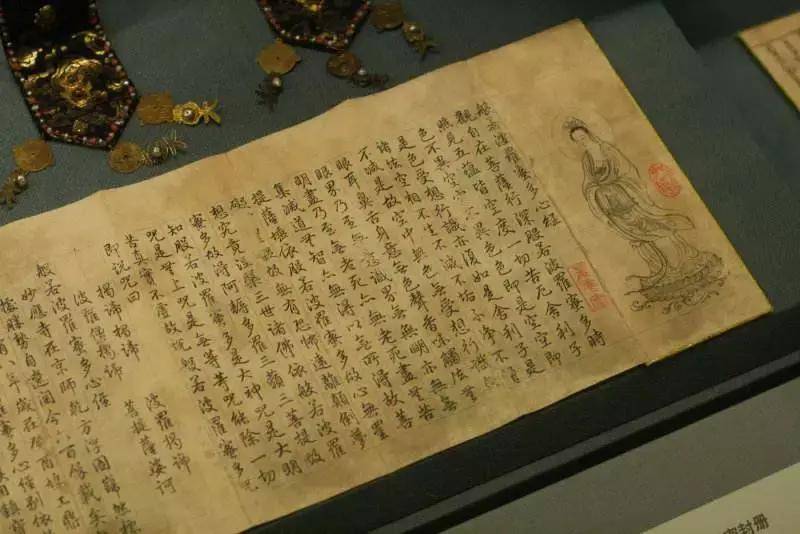 般若波羅蜜多心經
觀自在菩薩行深般若波羅蜜多時
照見五蘊皆空度一切苦厄舍利子
色不異空空不異色色即是空空即
是色受想行識亦復如是舍利子是
諸法空相不生不滅不垢不淨不增
不減是故空中無色無受想行識無
眼耳鼻舌身意無色聲香味觸法無
眼界乃至無意識界無無明亦無無
明盡乃至無老死亦無老死盡無苦
集滅道無智亦無得以無所得故菩
提薩埵依般若波羅蜜多故心無罣
礙無罣礙故無有恐怖遠離顛倒夢
想究竟涅槃三世諸佛依般若波羅
蜜多故得阿耨多羅三藐三菩提故
知般若波羅蜜多是大神咒是大明
咒是無上咒是無等等咒能除一切
苦真實不虛故說般若波羅蜜多咒
即說咒曰
揭諦揭諦 波羅揭諦
波羅僧揭諦 菩提薩婆訶
般若波羅蜜多心經
妙應寺在京師乾方浮圖歸然標
勝勢自遼迄今六百餘載矣
年歲在癸酉
蜜多心經
封册